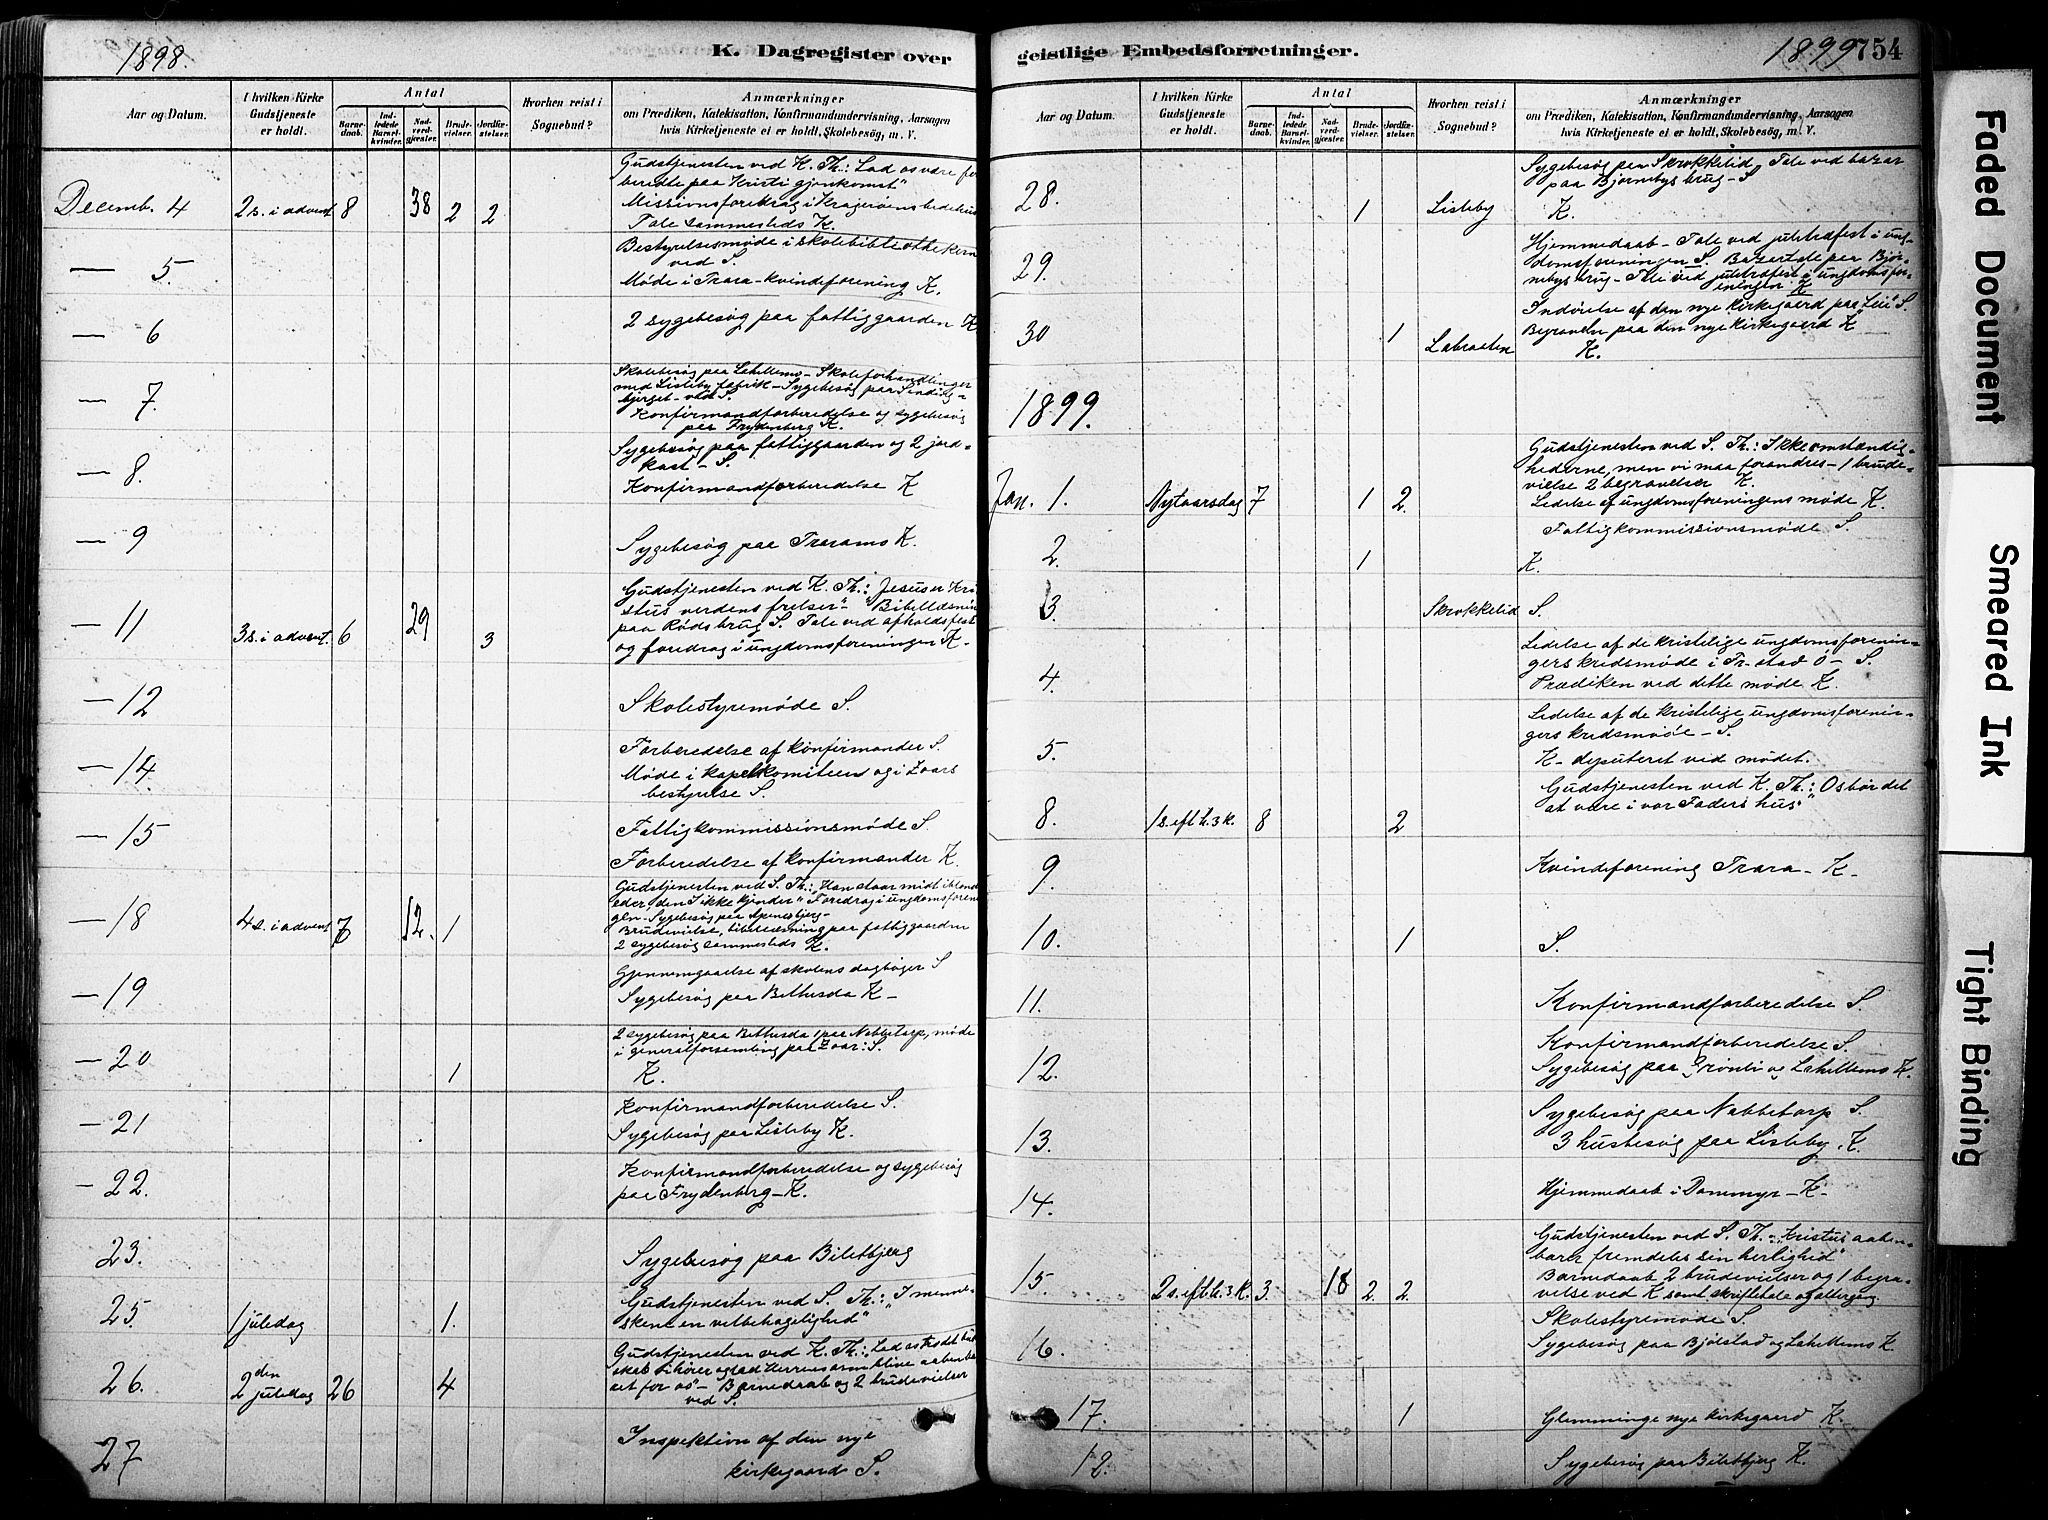 1898.
K. Dagregister over
Aar og Datum.
I hvilken Kirke Gudstjeneste er holdt.
Antal
Barnedaab.
Indledede Barselkvinder.
Nadverdgjester.
Brudevielser.
Jordfæstelser.
Hvorhen reist i Sognebud?
Anmærkninger
om Prædiken, Katekisation, Konfirmandundervisning, Aarsagen
hvis Kirketjeneste ei er holdt, Skolebesøg, m. V.
Decemb. 4 2 s. i advent 8 38 2 2
Gudstjenesten ved K. Th: Lad os være for
beredte paa Kristi gjenkomst"
Missionsforedrag i Kragerøens bedehus
Tale sammesteds K.
— 5
Bestyrelsesmøde i skolebibliothekerne
ved S.
Møde i Trara-kvindeforening K.
— 6
2 sygebesøg paa fattiggaarden K
— 7.
Skolebesøg paa Lahellems - Skoleforhandlinger
med Lisleby fabrik - Sygebesøg paa
bjerget - ved S.
Konfirmandforberedelse og sygebesøg
paa Frydenberg K.
— 8.
Sygebesøg paa fattiggaarden og 2 jord-
kast - S.
Konfirmandforberedelse K
— 9
Sygebesøg paa Trarams K.
— 11 3 s. i advent. 6 29 3
Gudstjenesten ved K. Th: "Jesus er Kri
stus verdens frelser" - Bibellæsning
paa Rødsbrug S. Tale ved afholdsfest
og foredrag i ungdomsforeningen K-
— 12
Skolestyremøde S.
— 14.
Forberedelse af konfirmander S.
Møde i kapelkomiteen og i Zoars
bestyrelse S.
— 15
Fattigkommissionsmøde S.
Forberedelse af konfirmander K.
— 18 4 s. i advent 7 12. 1
Gudstjenesten ved S. Th: "Han staar midt iblandt
eder, den I ikke kjender" Foredrag i ungdomsforenin
gen - Sygebesøg paa Apenesbjerg -
Brudevielse, bibellæsning paa fattiggaarden
2 sygebesøg sammesteds K.
— 19
Gjennemgaaelse af skolens dagbøger S
Sygebesøg paa Bethesda K-
— 20 1
2 sygebesøg paa Bethesda 1 paa Nabbetorp, møde
i generalforsamling paa Zoar: S.
K.
— 21
Konfirmandforberedelse S.
Sygebesøg paa Lisleby K.
— 22.
Konfirmandforberedelse og sygebesøg
paa Frydenberg - K.
23.
Sygebesøg paa Biletbjerg
25. 1 juledag 1.
Gudstjenesten ved S. Th: "I menne-
skene en velbehagelighed"
26. 2den juledag 26 4
Gudstjenesten ved K. Th: Lad os tro det bud
skab vi hører og lad Herrens arm blive aabenba
ret for os" - Barnedaab og 2 brudevielser
ved S.
27
Inspektion af den nye
kirkegaard S.
geistlige Embedsforretninger.
1899
754
Aar og Datum.
I hvilken Kirke Gudstjeneste er holdt.
Antal
Barnedaab.
Indledede Barselkvinder.
Nadverdgjester.
Brudevielser.
Jordfæstelser.
Hvorhen reist i Sognebud?
Anmærkninger
om Prædiken, Katekisation, Konfirmandundervisning, Aarsagen
hvis Kirketjeneste ei er holdt, Skolebesøg, m. V.
28. 1 Lisleby
Sygebesøg paa Skrokkelid, Tale ved bazar
paa Bjørnebys brug - S
K.
29.
Hjemmedaab - Tale ved juletræfest i ung-
domsforeningen S. Bazartale paa Bjør-
nebys brug - Tale ved juletræfest i ungdomsfor-
eningen K
30 1 Labraaten
Indvielse af den nye kirkegaard paa Leie S.
Begravelse paa den nye kirkegaard K
K.
1899.
Jan. 1. Nytaarsdag 7 1 2.
Gudstjenesten ved S. Th: Ikke omstændig-
hederne, men vi maa forandres - 1 brude-
vielse 2 begravelser K.
Ledelse af ungdomsforeningens møde K.
2. 1
Fattigkommissionsmøde S.
K.
3. Skrokkelid S.
4.
Ledelse af de kristelige ungdomsforenin-
gers kredsmøde i Fr.stad Ø - S.
Prædiken ved dette møde K.
5.
Ledelse af de kristelige ungdomsforenin-
gers kredsmøde - S.
K- deputeret ved mødet.
8. 1 s. eft. h. 3 k. 8 2
Gudstjenesten ved K. Th: "Os bør det
at være i vor Faders hus"
9.
Kvindeforening Trara - K-
10. 1 S.
11.
Konfirmandforberedelse S.
12.
Konfirmandforberedelse S.
Sygebesøg paa Grønli og Lahellems K.
13.
Sygebesøg paa Nabbetorp S.
3 husbesøg paa Lisleby. K.
14.
Hjemmedaab i Dammyr - K-
15. 2 s. eft. h. 3 K. 3 18 2. 2
Gudstjenesten ved S. Th: "Kristus aaben-
barer fremdeles sin herlighed"
Barnedaab 2 brudevielser og 1 begra-
velse ved K samt skriftetale og altergang
16.
Skolestyremøde S.
Sygebesøg paa Bjølstad og Lahellems K
17. 1
Glemminge nye kirkegaard K.
12.
Sygebesøg paa Biletbjerg K.
Faded Document
Smeared Ink
Tight Binding